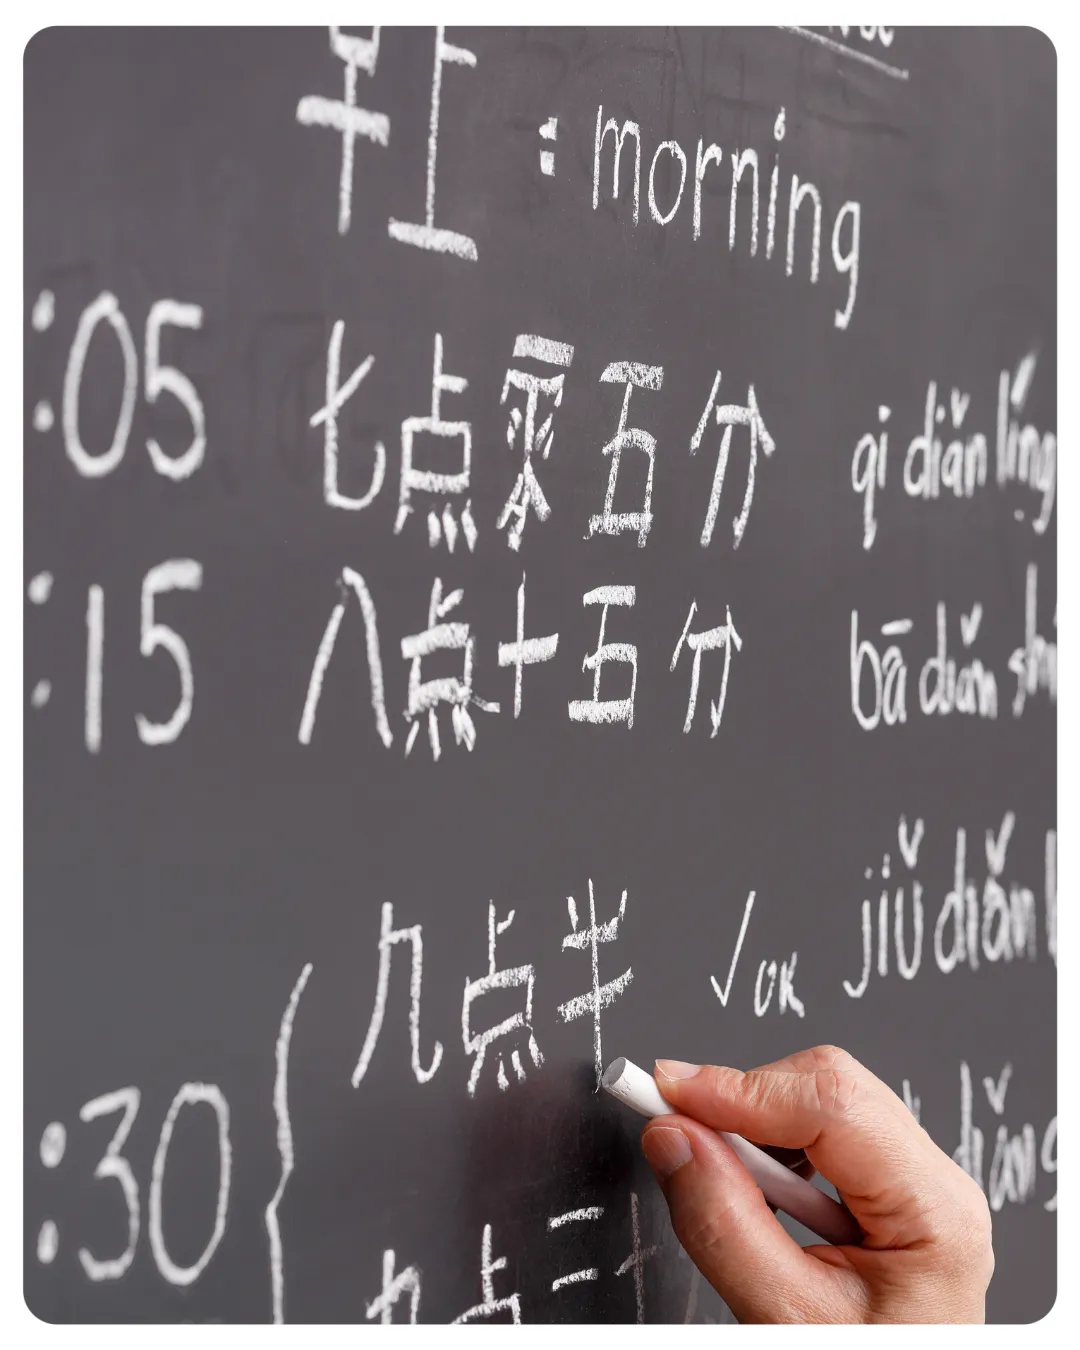 早上 : morning
:05 七点零五分 qi diǎn líng
:15 八点十五分 bā diǎn shí
九点半 √ OK jiǔ diǎn
:30
九点三十